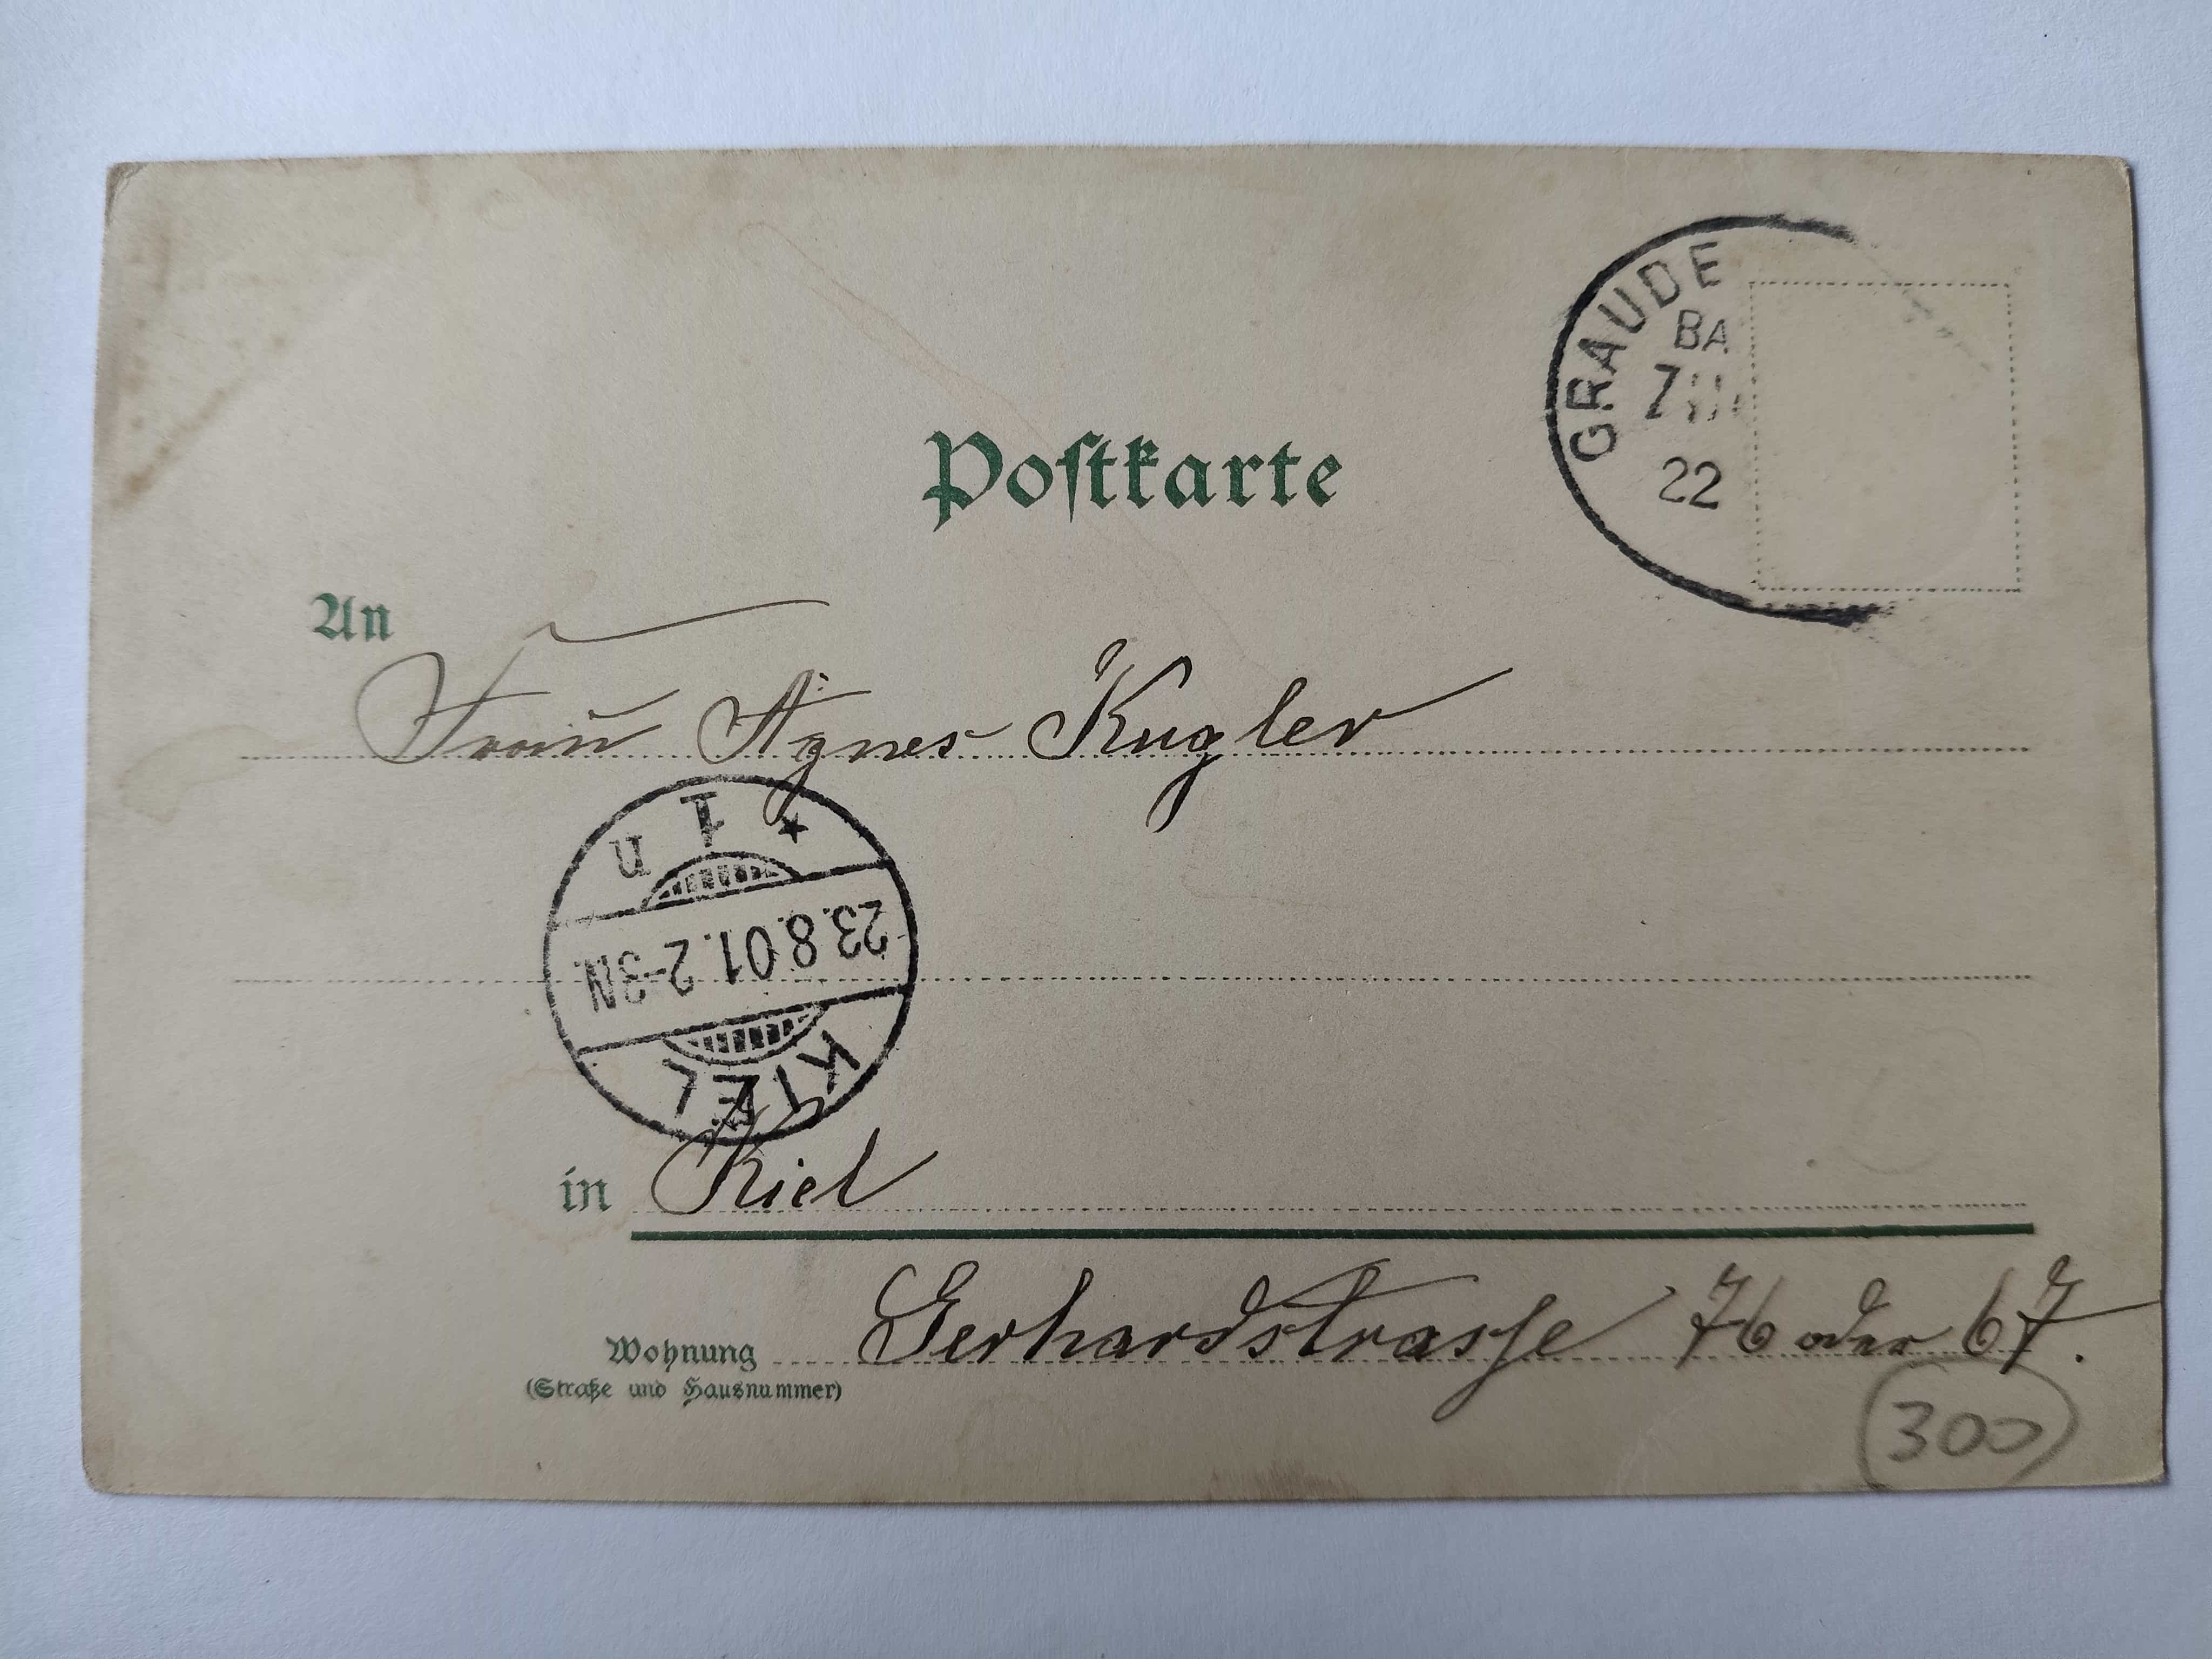 Postkarte
GRAUDE
BA
ZUG
22
An
Frau Agnes Kugler
KIEL
23.8.01.2-3N.
* 1 u
in Kiel
Wohnung Gerhardstrasse 76 oder 67.
(Straße und Hausnummer)
300